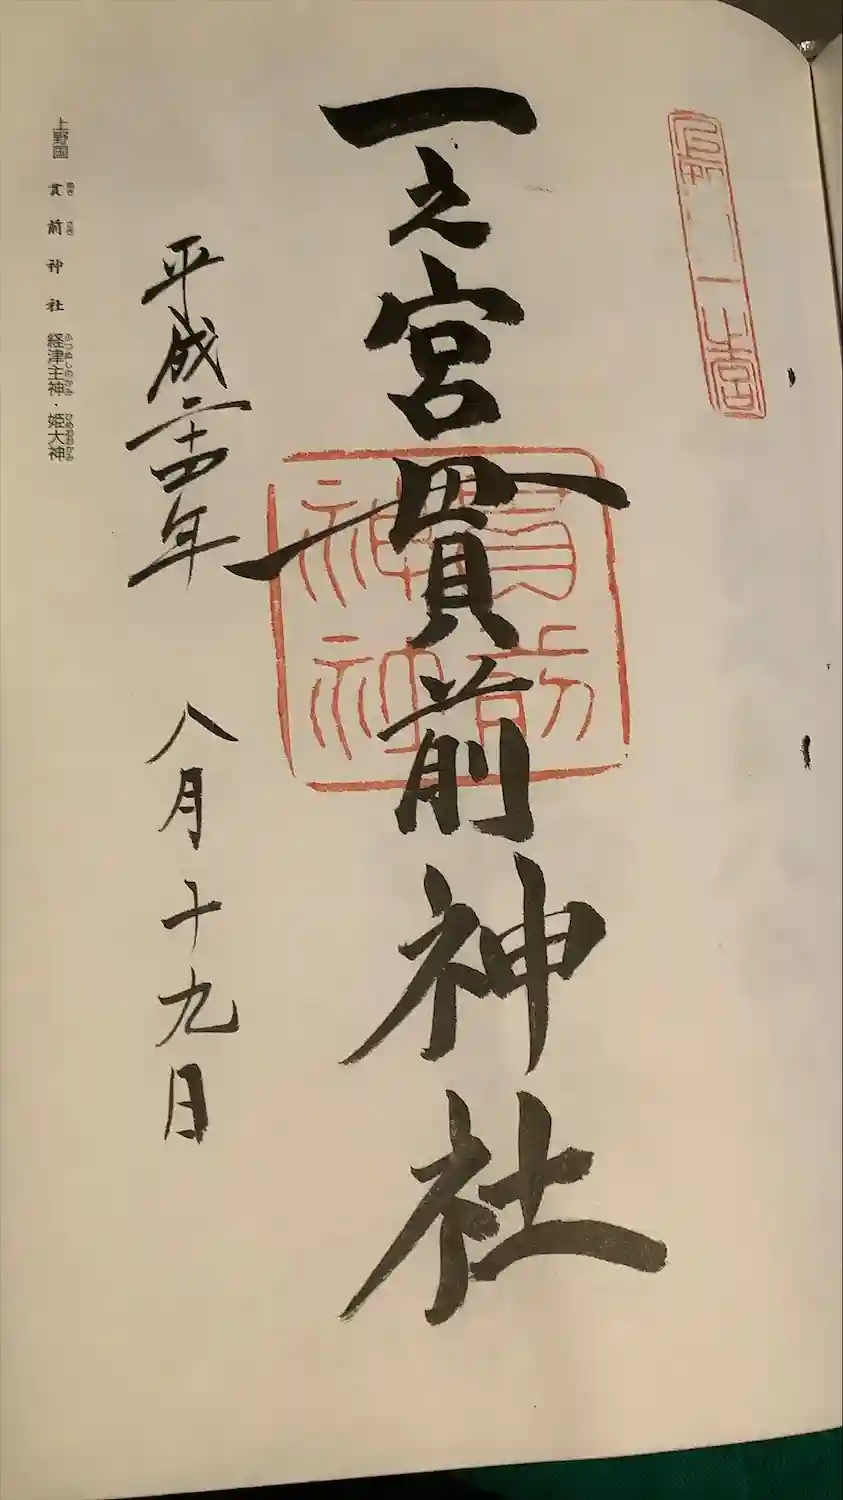 一之宮貫前神社
平成二十四年 八月十九日
上野国 貫前神社 経津主神・姫大神
貫前神社